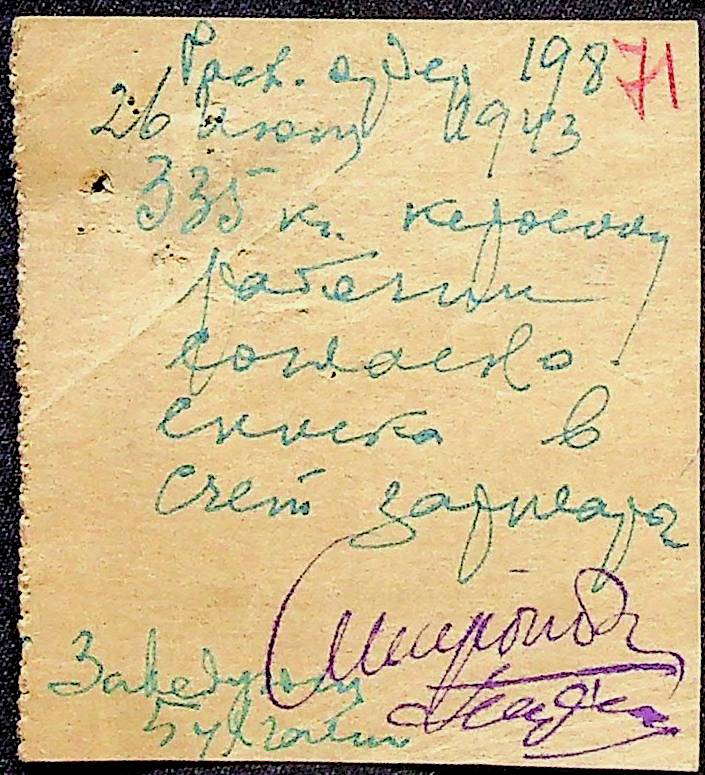 Расх. ордер 198 71
26 июня 1943
335 кг. керосину
рабочим
согласно
списка в
счет зарплаты
Заведующий
Бухгалтер